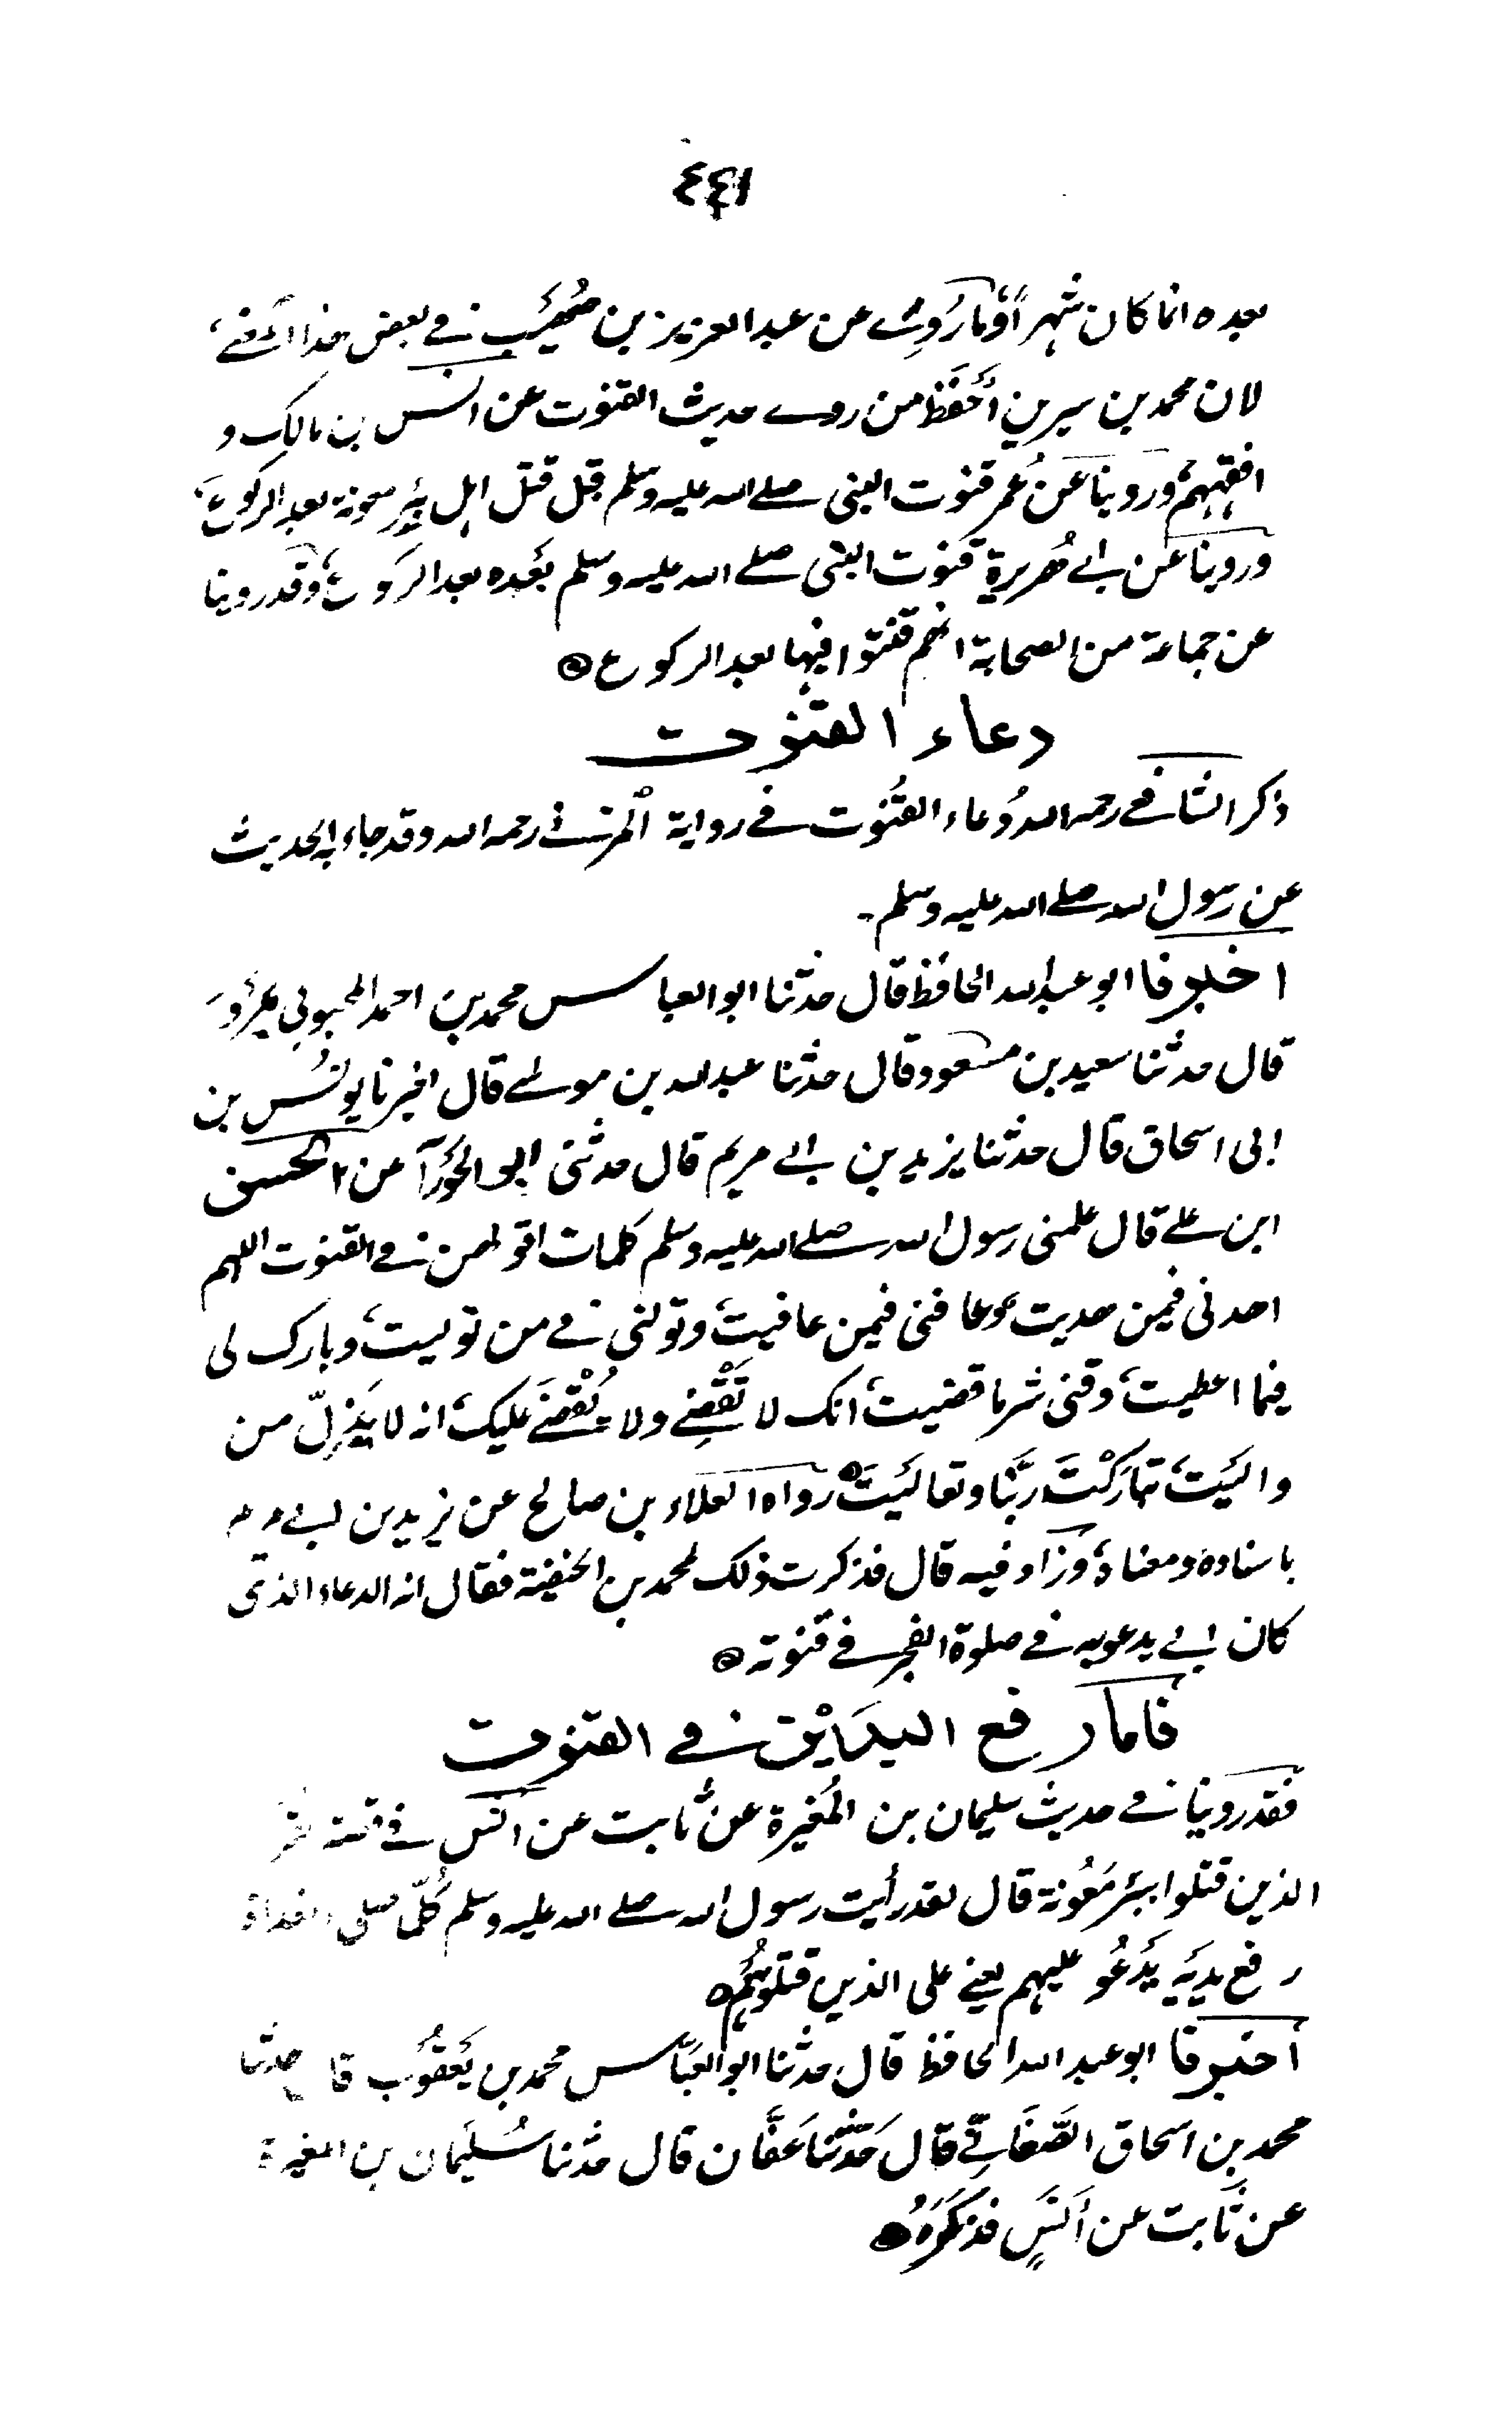 بعده انما كان شهراً وما رُوِىَ عن عبد العزيز بن صُهَيْب فى بعض هذا المعنى
لان محمد بن سيرين أَحْفَظ من روى حديث القنوت عن انس بن مالك و
افقههم وروينا عن عُمر قنوت النبى صلى الله عليه وسلم قبل قتل اهل بئر معونة بعد الركوع
وروينا عن ابى هُريرة قنوت النبى صلى الله عليه وسلم بَعْده بعد الركوع وقد روينا
عن جماعة من الصحابة انهم قنتوا فيها بعد الركوع
دعاء القنوت
ذكر الشافعى رحمه الله دُعاء القُنوت فى رواية المزنى رحمه الله وقد جاء به الحديث
عن رسول الله صلى الله عليه وسلم۔
اخبرنا ابو عبد الله الحافظ قال حدثنا ابو العباس محمد بن احمد المحبوبى بمرو
قال حدثنا سعيد بن مسعود قال حدثنا عبد الله بن موسى قال اخبرنا يونُس بن
ابى اسحاق قال حدثنا يزيد بن ابى مريم قال حدثنى ابو الحَوْرآ عن الحسن
ابن على قال علمنى رسول الله صلى الله عليه وسلم كلمات اقولهن فى القنوت اللهم
اهدنى فيمن هديت وعافنى فيمن عافيت وتولنى فى من توليت وبارك لى
فيما اعطيت وقنى شر ما قضيت انك لا تَقْضِى ولا يُقْضَى عليك انه لا يَذِلّ من
واليَتَ تبَارَكْتَ ربَّنا وتعاليَتَ رواه العلاء بن صالح عن يزيد بن ابى
باسناده ومعناه وزاد فيه قال فذكرت ذلك لمحمد بن الحنفية فقال انه الدعاء الذى
كان ابى يدعو به فى صلوة الفجر فى قنوته
فاما رفع اليدَيْن فى القنوت
فقد روينا فى حديث سليمان بن المُغيرة عن ثابت عن انس فى قصة
الذين قتلوا ببئر مَعُونة قال لقد رأيت رسول الله صلى الله عليه وسلم كُلّما صلى الغداة
رفع يديَه يَدْعُو عليهم يعنى على الذين قتلوهُم
أخبرنا ابو عبد الله الحافظ قال حدثنا ابو العبّاس محمد بن يَعْقُوب قا حدثنا
محمد بن اسحاق الصَّغَانى قال حَدثنا عَفَّان قال حدثنا سُليمان بن المغيرة
عن ثَابت عن أنَسٍ فذكَرَهُ